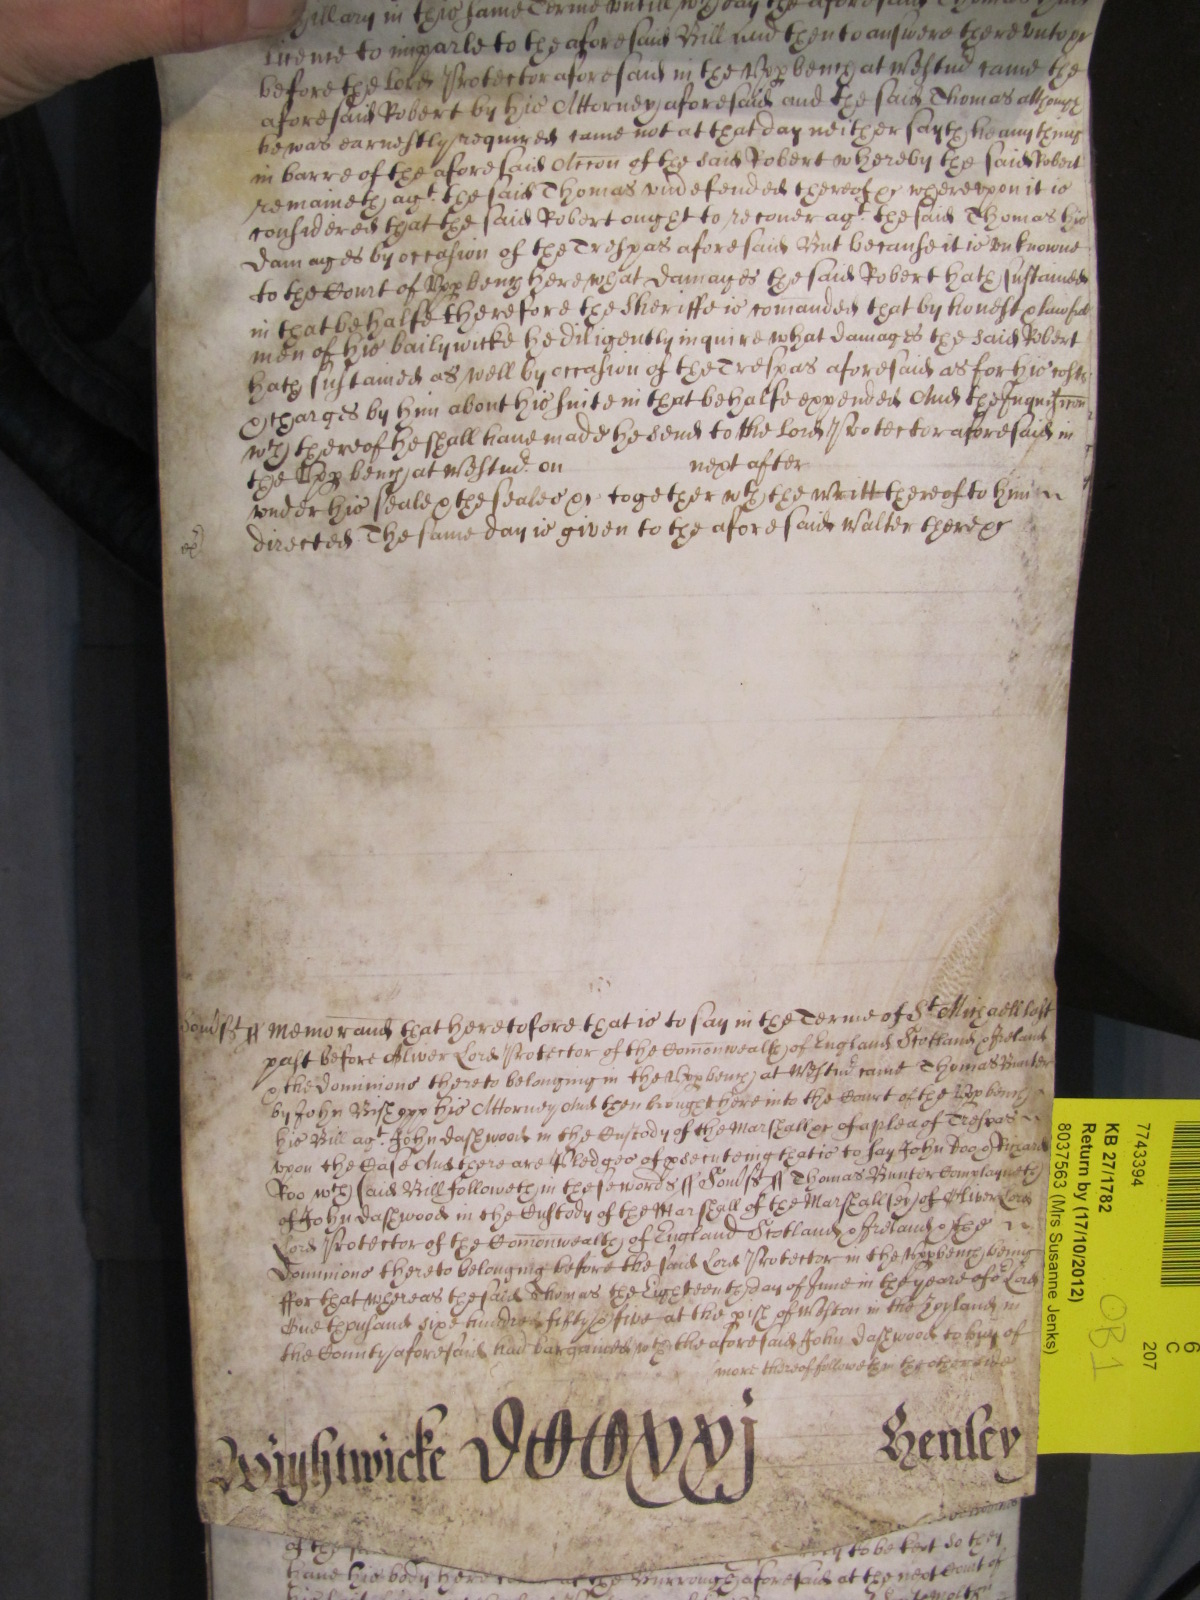 Hillary in this same Terme untill wch day the aforesaid Thomas had
licence to imparle to the aforesaid Bill and then to answere thereunto &c
before the Lord Protector aforesaid in the Upp bench at Westmr came the
aforesaid Robert by his Attorney aforesaid and the said Thomas although
he was earnestly required came not at that day neither sayth he any thing
in barre of the aforesaid Accon of the said Robert whereby the said Robert
remaineth agt the said Thomas undefended thereof &c whereupon it is
considered that the said Robert ought to recover agt the said Thomas his
damages by occasion of the Trespas aforesaid But because it is unknowne
to the Court of Upp bench here what damages the said Robert hath sustained
in that behalfe therefore the Sheriffe is comanded that by honest & lawfull
men of his bailywicke he diligently inquire what damages the said Robert
hath sustained as well by occasion of the Trespas aforesaid as for his costs
& charges by him about his suite in that behalfe expended And the Inquisicon
wch thereof he shall have made he send to the Lord Protector aforesaid in
the Upp bench at Westmr on next after
under his seale & the seales &c together wth the writt thereof to him
directed The same day is given to the aforesaid Walter there &c
Somst ss Memorand that heretofore that is to say in the Terme of St Michaell last
past before Oliver Lord Protector of the Comonwealth of England Scotland & Ireland
& the Dominions thereto belonging in the Upp bench at Westmr came Thomas Bunter
by John Bishopp his Attorney And then brought here into the Court of the Upp bench
his Bill agt John Dashwood in the Custody of the Marshall &c of a plea of Trespas
upon the Case And there are Pledges of prsecuteing that is to say John Doo & Richard
Roo wch said Bill followeth in these words ss Somst ss Thomas Bunter Complayneth
of John Dashwood in the Custody of the Marshall of the Marshallsey of Oliver Lord
Lord Protector of the Comonwealth of England Scotland & Ireland & the
Dominions thereto belonging before the said Lord Protector in the Upp bench being
ffor that whereas the said Thomas the Eighteenth day of June in the yeare of or Lord
One thousand sixe hundred fifty & five at the pish of Weston in the Zoyland in
the County aforesaid had bargained wth the aforesaid John Dashwood to buy of
more thereof followeth on the other side
Wightwicke DCCxxj Henley
of the to be kept so they
have his body here at the Burrough aforesaid at the next Court of
7743394
KB 27/1782
Return by (17/10/2012)
8037563 (Mrs Susanne Jenks)
6
C
207
OB1